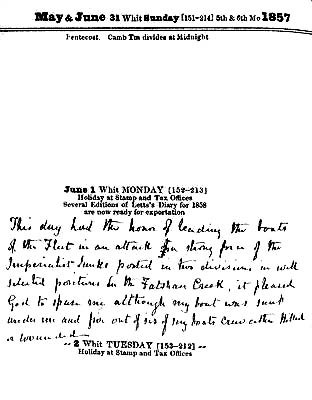 May & June 31 Whit Sunday [151-214] 5th & 6th Mo 1857
Pentecost. Camb Tm divides at Midnight
June 1 Whit MONDAY [152-213]
Holiday at Stamp and Tax Offices
Several Editions of Letts's Diary for 1858
are now ready for exportation
This day had the honor of leading the boats
of the Fleet in an attack a strong force of the
Imperialist Junks posted in two divisions in well
selected positions in the Fatshan Creek, it pleased
God to spare me although my boat was sunk
under me and five out of six of my boats crew either killed
or wounded
2 Whit TUESDAY [153-212]
Holiday at Stamp and Tax Offices